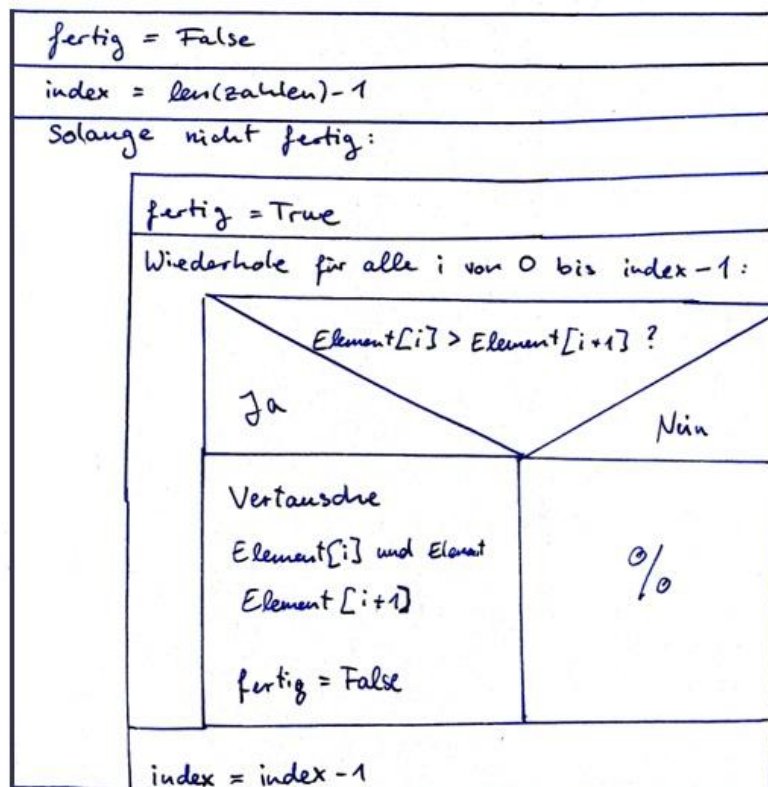 fertig = False
index = len(zahlen)-1
Solange nicht fertig:
fertig = True
Wiederhole für alle i von 0 bis index-1:
Element[i] > Element[i+1] ?
Ja
Nein
Vertausche
Element[i] und Element
Element [i+1]
%
fertig = False
index = index-1